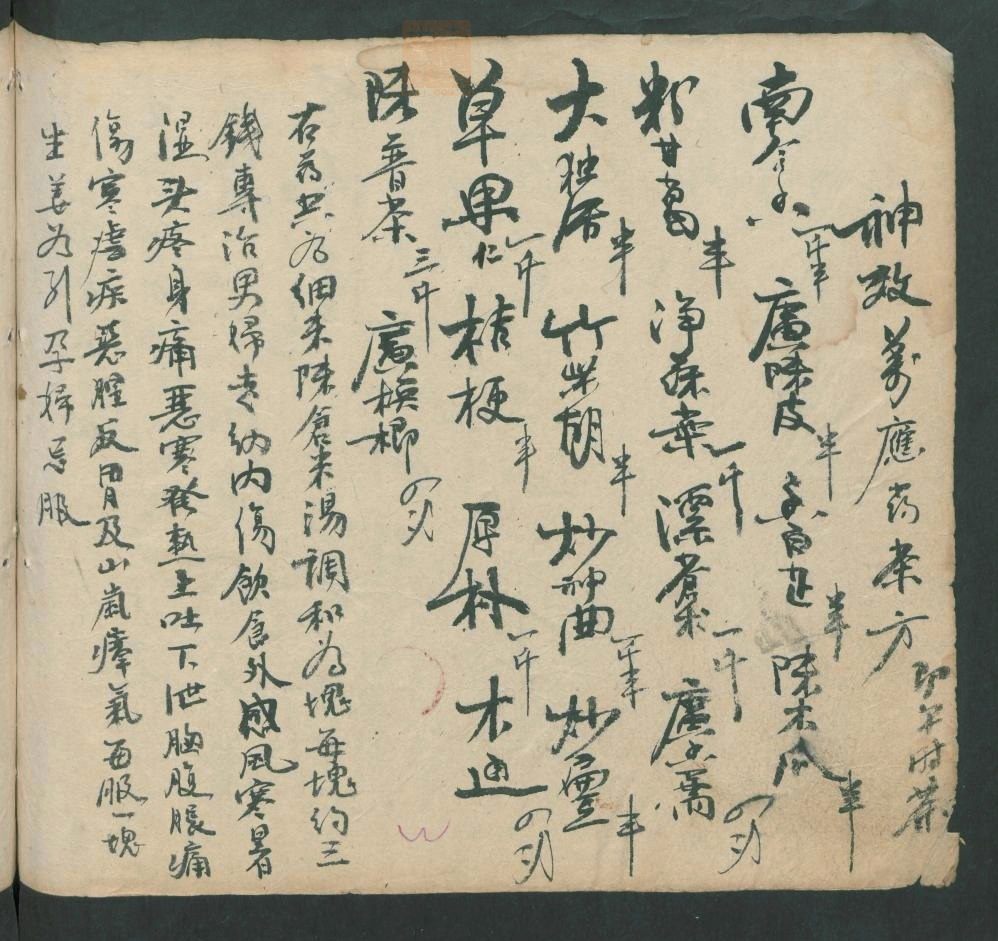 神效萬應药茶方
即午时茶
南查 一斤半 廣陳皮 半斤 香白芷 半斤 陳木瓜 半斤
粉甘葛 半斤 净蘇葉 一斤 漂蒼术 一斤 廣香薷 四刄
大独活 半斤 竹柴胡 半斤 炒神曲 一斤半 炒 半斤
草果仁 一斤 桔梗 半斤 厚朴 一斤 木通 四刄
陳普茶 三斤 廣槟榔 四刄
右药共为细末陳倉米湯調和為塊每塊約三
錢專治男婦老幼内傷飲食外感風寒暑
濕头疼身痛惡寒發熱上吐下泄胸腹脹痛
傷寒瘧疾惡腥反胃及山嵐瘴氣每服一塊
生姜为引孕婦忌服